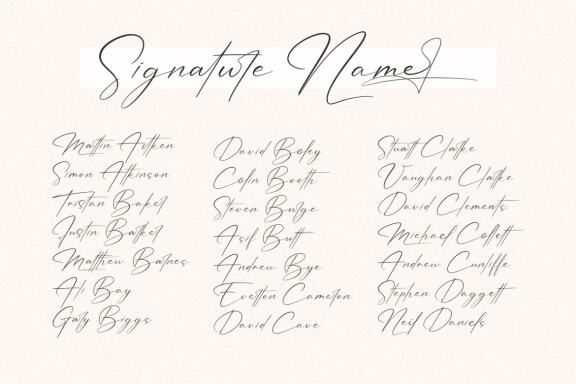 Signature Name
Martin Aitken
Simon Atkinson
Tristan Baker
Justin Barker
Matthew Barnes
Ali Bay
Gary Biggs
David Boley
Colin Booth
Steven Burge
Asif Butt
Andrew Bye
Everton Cameron
David Cave
Stuart Clarke
Vaughan Clarke
David Clements
Michael Collett
Andrew Cunliffe
Stephen Daggett
Neil Daniels